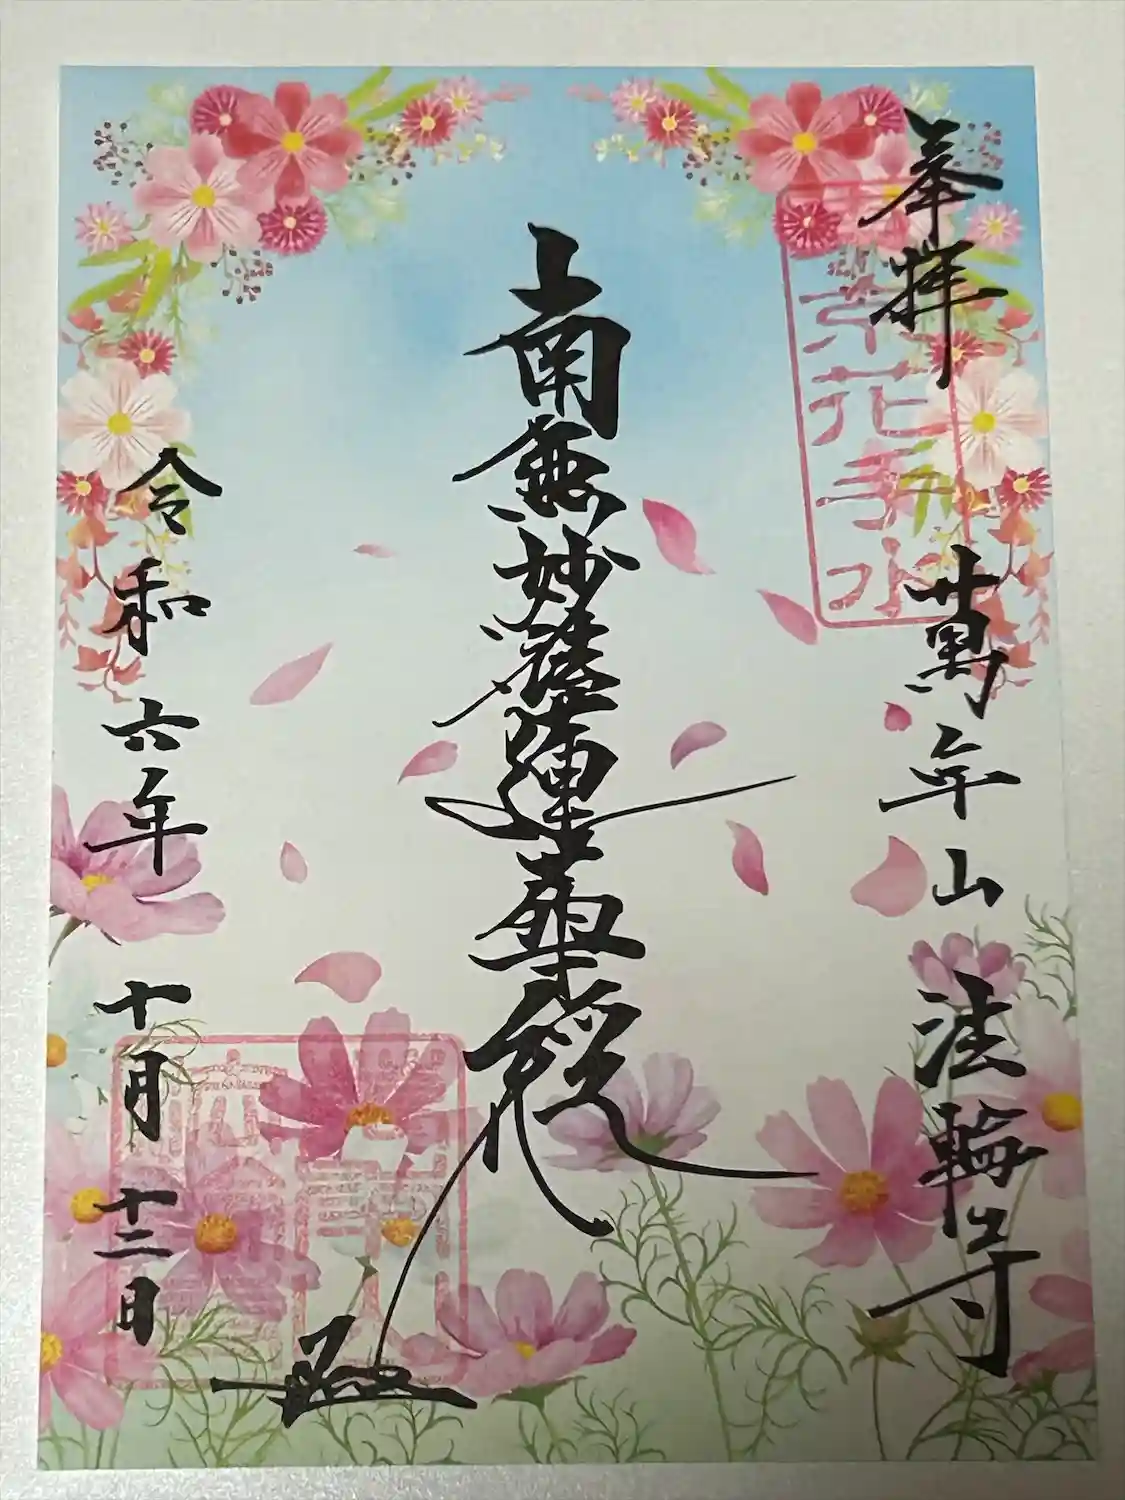 奉拝
京花手水
萬年山 法輪寺
南無妙法蓮華経
令和六年 十月 十二日